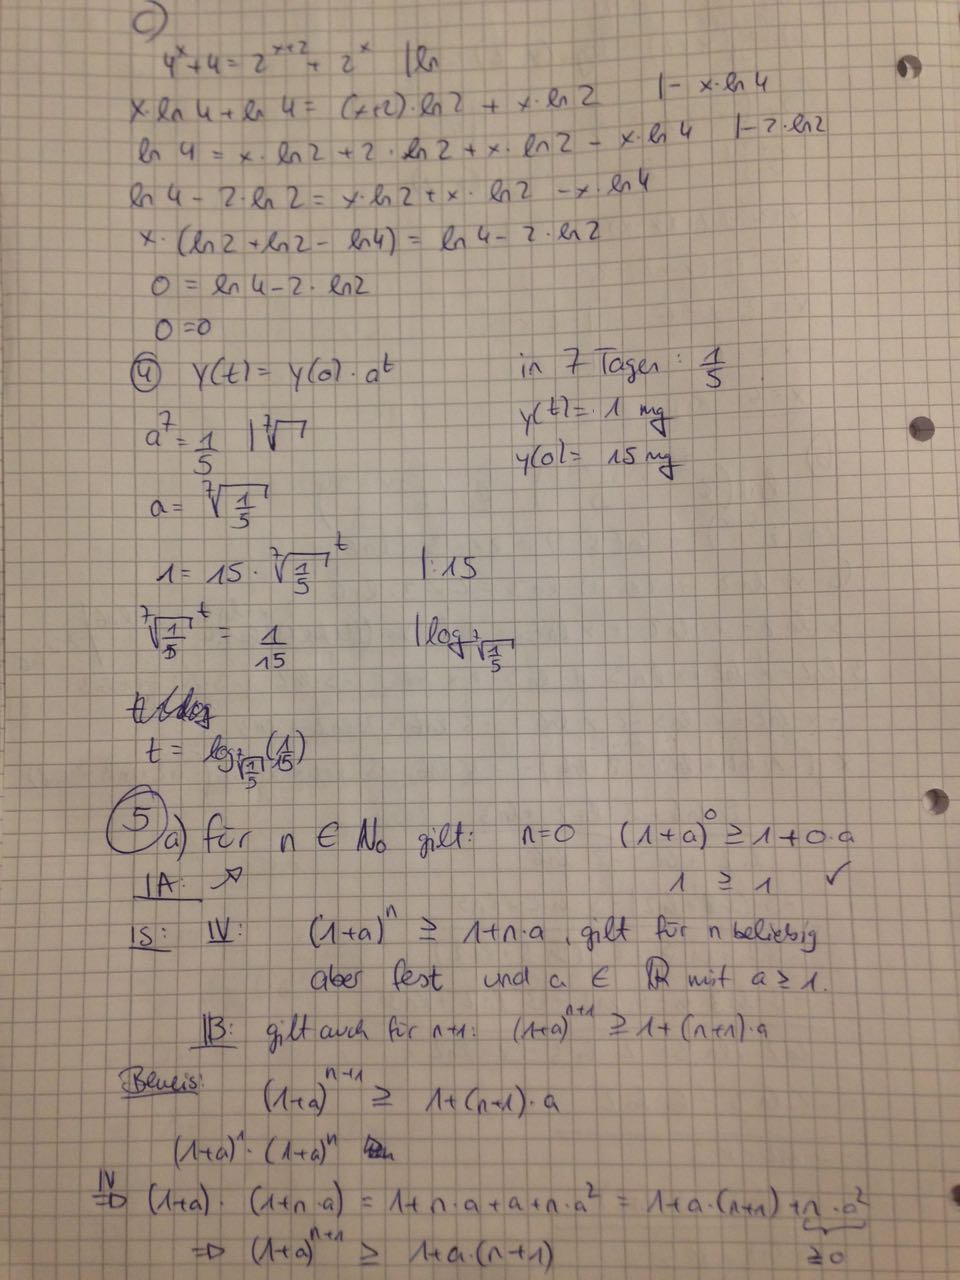 c)
4^x + 4 = 2^(x+2) + 2^x |ln
x·ln 4 + ln 4 = (x+2)·ln 2 + x·ln 2 |- x·ln 4
ln 4 = x·ln 2 + 2·ln 2 + x·ln 2 - x·ln 4 |-2·ln2
ln 4 - 2·ln 2 = x·ln 2 + x·ln 2 - x·ln 4
x·(ln 2 + ln 2 - ln 4) = ln 4 - 2·ln 2
0 = ln 4 - 2·ln 2
0 = 0
④ y(t) = y(0)·a^t in 7 Tagen: 1/5
y(t) = 1 mg
a^7 = 1/5 |⁷√
y(0) = 15 mg
a = ⁷√(1/5)
1 = 15·⁷√(1/5)^t |:15
⁷√(1/5)^t = 1/15 |log_⁷√(1/5)
t = log_⁷√(1/5) (1/15)
⑤ a) für n ∈ ℕ₀ gilt: n=0 (1+a)^0 ≥ 1+0·a
IA: ↗ 1 ≥ 1 ✓
IS: IV: (1+a)^n ≥ 1+n·a, gilt für n beliebig
aber fest und a ∈ ℝ mit a ≥ 1.
IB: gilt auch für n+1: (1+a)^(n+1) ≥ 1+(n+1)·a
Beweis: (1+a)^(n+1) ≥ 1+(n+1)·a
(1+a)^1·(1+a)^n
IV ⇒ (1+a)·(1+n·a) = 1+n·a+a+n·a² = 1+a·(n+1)+n·a²
⇒ (1+a)^(n+1) ≥ 1+a·(n+1) ≥0